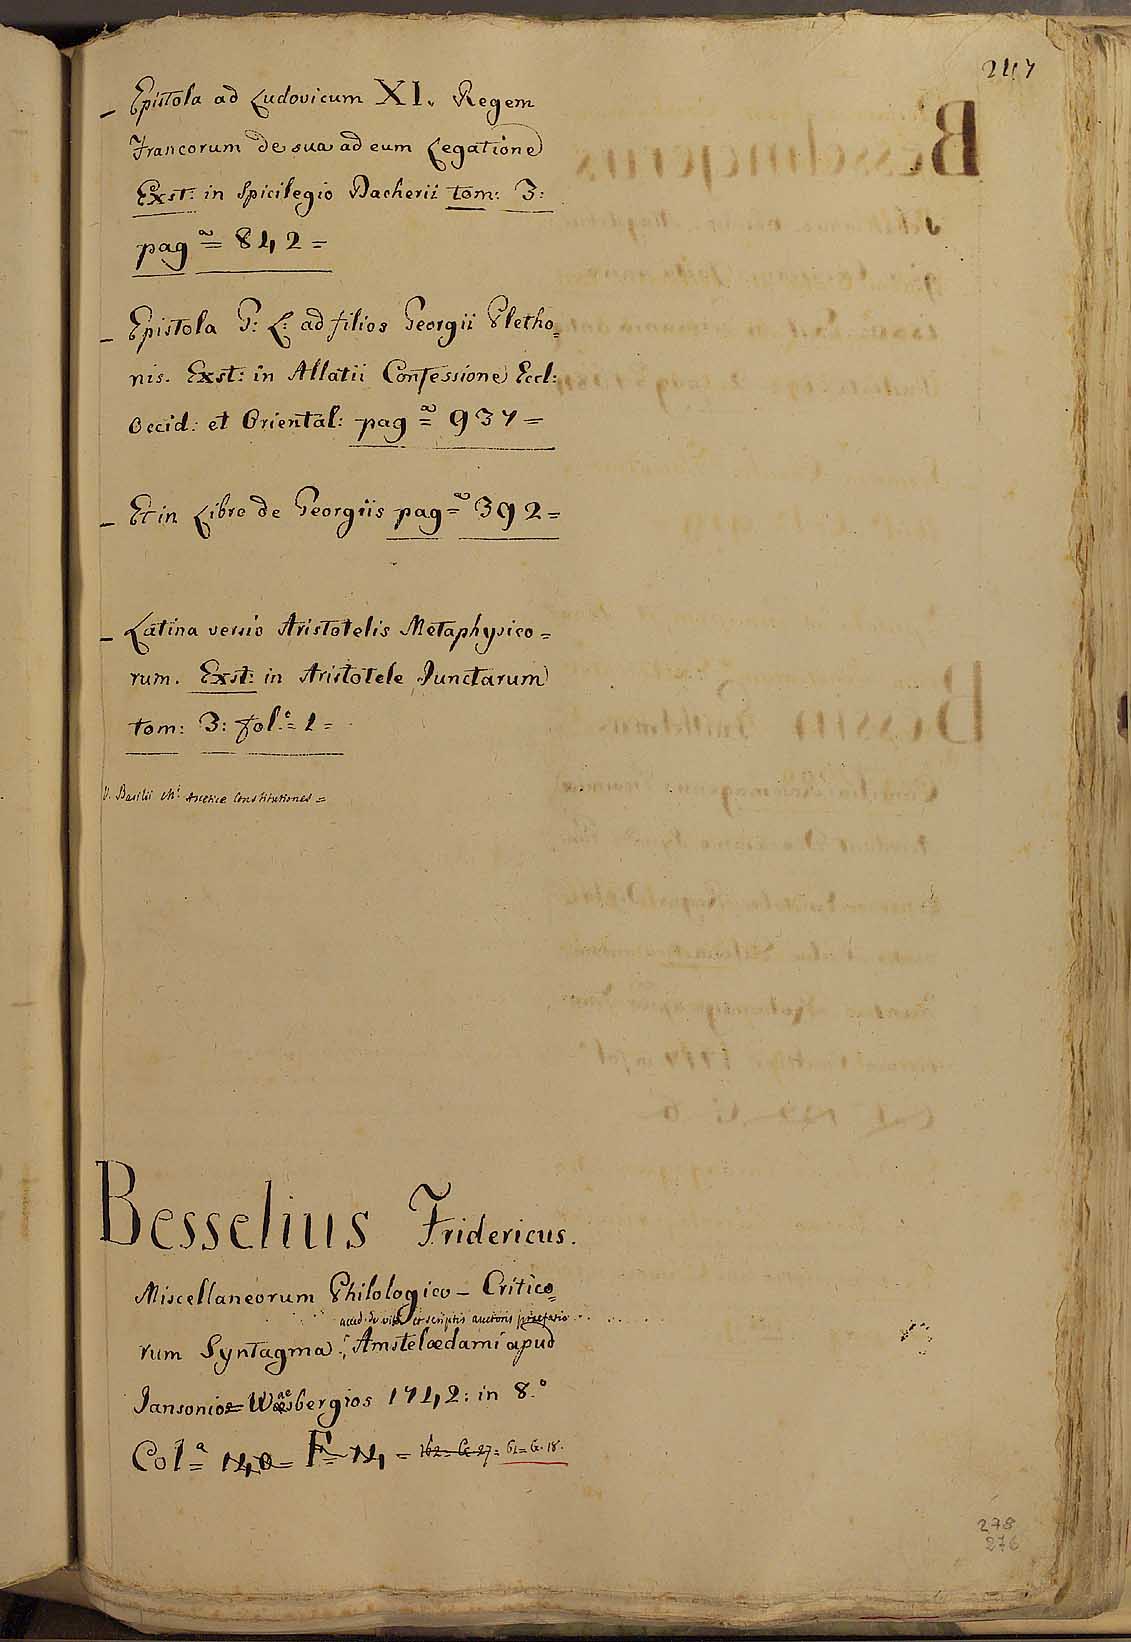 247
- Epistola ad Ludovicum XI. Regem
Francorum de sua ad eum Legatione
Exst: in Spicilegio Dacherii tom: 3:
pag.ª = 842 =
- Epistola G: L: ad filios Georgii Pletho=
nis. Exst: in Allatii Confessione Eccl:
Occid: et Oriental: pag.ª = 937 =
- Et in Libro de Georgiis pag.ª = 392 =
- Latina versio Aristotelis Metaphysico=
rum. Exst: in Aristotele Junctarum
tom: 3: fol.º = 1 =
V. Basilii M.i Ascetice Constitutiones =
Besselius Fridericus.
Miscellaneorum Philologico - Critico=
acced. de vita et scriptis auctoris praefatio
rum Syntagma: Amstelœdami apud
Jansonio= Waesbergios 1742: in 8.º
Col.ª = N, = 162= C. 27= 61= G. 18.
278
276